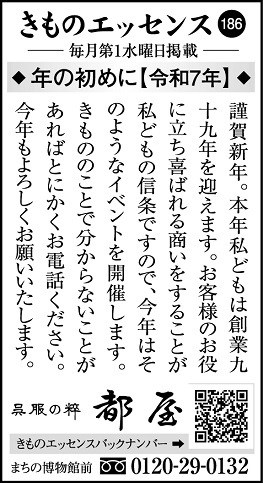 きものエッセンス 186
毎月第1水曜日掲載
◆ 年の初めに【令和7年】 ◆
謹賀新年。本年私どもは創業九
十九年を迎えます。お客様のお役
に立ち喜ばれる商いをすることが
私どもの信条ですので、今年はそ
のようなイベントを開催します。
きもののことで分からないことが
あればとにかくお電話ください。
今年もよろしくお願いいたします。
呉服の粋 都屋
きものエッセンスバックナンバー ➡
まちの博物館前 0120-29-0132